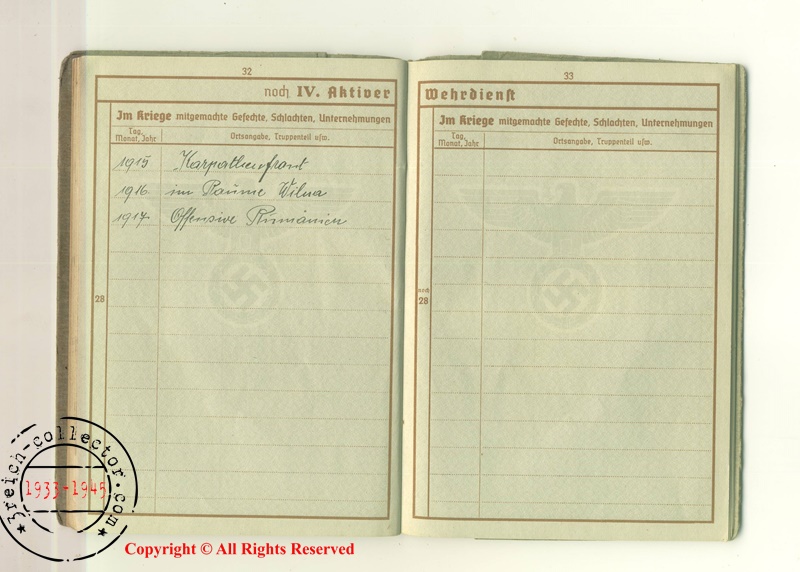 32
noch IV. Aktiver
Im Kriege mitgemachte Gefechte, Schlachten, Unternehmungen
Tag, Monat, Jahr
Ortsangabe, Truppenteil usw.
1915 Karpathenfront
1916 im Raume Wilna
1917 Offensive Rumänien
28
33
Wehrdienst
Im Kriege mitgemachte Gefechte, Schlachten, Unternehmungen
Tag, Monat, Jahr
Ortsangabe, Truppenteil usw.
noch
28
3reich-collector.com
1933-1945
Copyright © All Rights Reserved